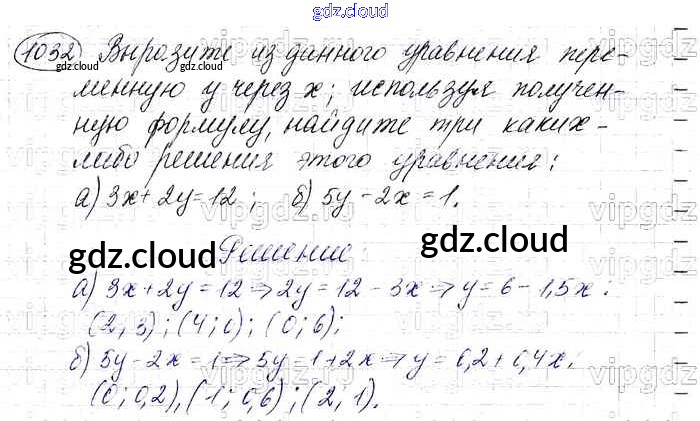 gdz.cloud
1032 Выразите из данного уравнения пере-
менную y через x; используя получен-
ную формулу, найдите три каких-
либо решения этого уравнения:
а) 3x + 2y = 12; б) 5y - 2x = 1.
Решение:
а) 3x + 2y = 12 ⇒ 2y = 12 - 3x ⇒ y = 6 - 1,5x;
(2, 3); (4; 0); (0; 6);
б) 5y - 2x = 1 ⇒ 5y = 1 + 2x ⇒ y = 0,2 + 0,4x;
(0; 0,2), (1; 0,6); (2, 1).
gdz.cloud
gdz.cloud
gdz.cloud
gdz.cloud